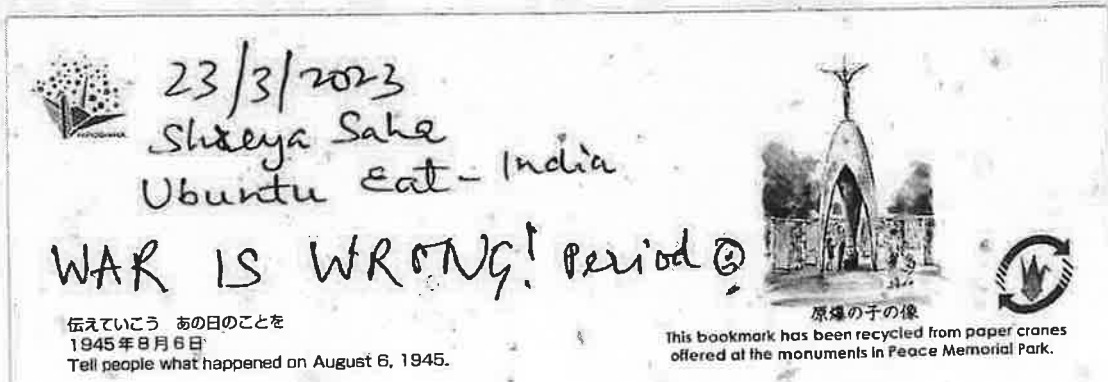 HIROSHIMA
23/3/2023
Shreya Saha
Ubuntu Eat - India
WAR IS WRONG! Period
伝えていこう あの日のことを
1945年8月6日
Tell people what happened on August 6, 1945.
原爆の子の像
This bookmark has been recycled from paper cranes
offered at the monuments in Peace Memorial Park.